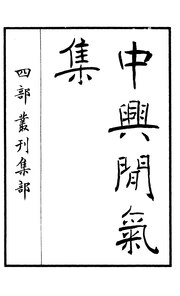 中興閒氣
集
四部叢刊集部